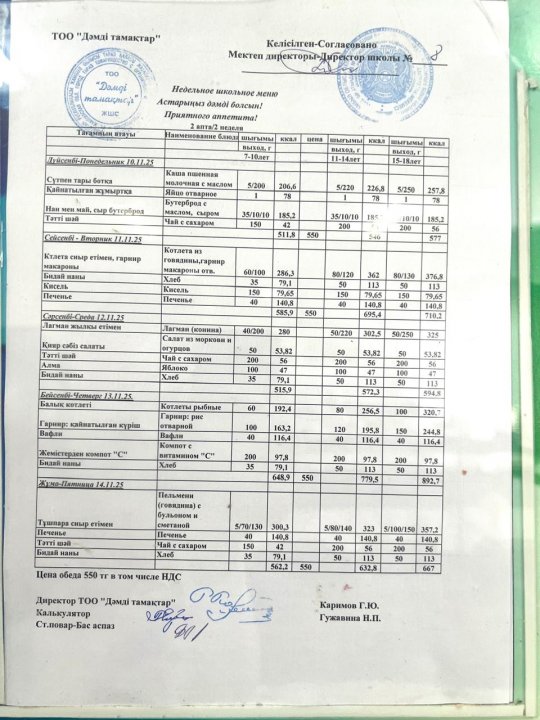 ТОО "Дәмді тамақтар"
Келісілген-Согласовано
Мектеп директоры-Директор школы № 8
ТОО
"Дәмді
тамақтар"
ЖШС
Недельное школьное меню
Астарыңыз дәмді болсын!
Приятного аппетита!
2 апта/2 неделя
Тағамның атауы Наименование блюда шығымы ккал цена шығымы ккал шығымы ккал
выход, г выход, г выход, г
7-10лет 11-14лет 15-18лет
Дүйсенбі-Понедельник 10.11.25
Сүтпен тары ботқа Каша пшенная молочная с маслом 5/200 206,6 5/220 226,8 5/250 257,8
Қайнатылған жұмыртқа Яйцо отварное 1 78 1 78 1 78
Нан мен май, сыр бутерброд Бутерброд с маслом, сыром 35/10/10 185,2 35/10/10 /10/10 185,2
Тәтті шәй Чай с сахаром 150 42 200 200 56
511,8 550 546 577
Сейсенбі - Вторник 11.11.25
Ктлета сиыр етімен, гарнир макароны Котлета из говядины,гарнир макароны отв. 60/100 286,3 80/120 362 80/130 376,8
Бидай наны Хлеб 35 79,1 50 113 50 113
Кисель Кисель 150 79,65 150 79,65 150 79,65
Печенье Печенье 40 140,8 40 140,8 40 140,8
585,9 550 695,4 710,2
Сәрсенбі-Среда 12.11.25
Лагман жылкы етімен Лагман (конина) 40/200 280 50/220 302,5 50/250 325
Қияр сәбіз салаты Салат из моркови и огурцов 50 53,82 50 53,82 50 53,82
Тәтті шәй Чай с сахаром 200 56 200 56 200 56
Алма Яблоко 100 47 100 47 100 47
Бидай наны Хлеб 35 79,1 50 113 50 113
515,9 572,3 594,8
Бейсенбі-Четверг 13.11.25.
Балық котлеті Котлеты рыбные 60 192,4 80 256,5 100 320,7
Гарнир: қайнатылған күріш Гарнир: рис отварной 100 163,2 120 195,8 150 244,8
Вафли Вафли 40 116,4 40 116,4 40 116,4
Жемістерден компот "С" Компот с витамином "С" 200 97,8 200 97,8 200 97,8
Бидай наны Хлеб 35 79,1 50 113 50 113
648,9 550 779,5 892,7
Жұма-Пятница 14.11.25
Тұшпара сиыр етімен Пельмени (говядина) с бульоном и сметаной 5/70/130 300,3 5/80/140 323 5/100/150 357,2
Печенье Печенье 40 140,8 40 140,8 40 140,8
Тәтті шәй Чай с сахаром 150 42 200 56 200 56
Бидай наны Хлеб 35 79,1 50 113 50 113
562,2 550 632,8 667
Цена обеда 550 тг в том числе НДС
Директор ТОО "Дәмді тамақтар" Каримов Г.Ю.
Калькулятор Гужавина Н.П.
Ст.повар-Бас аспаз